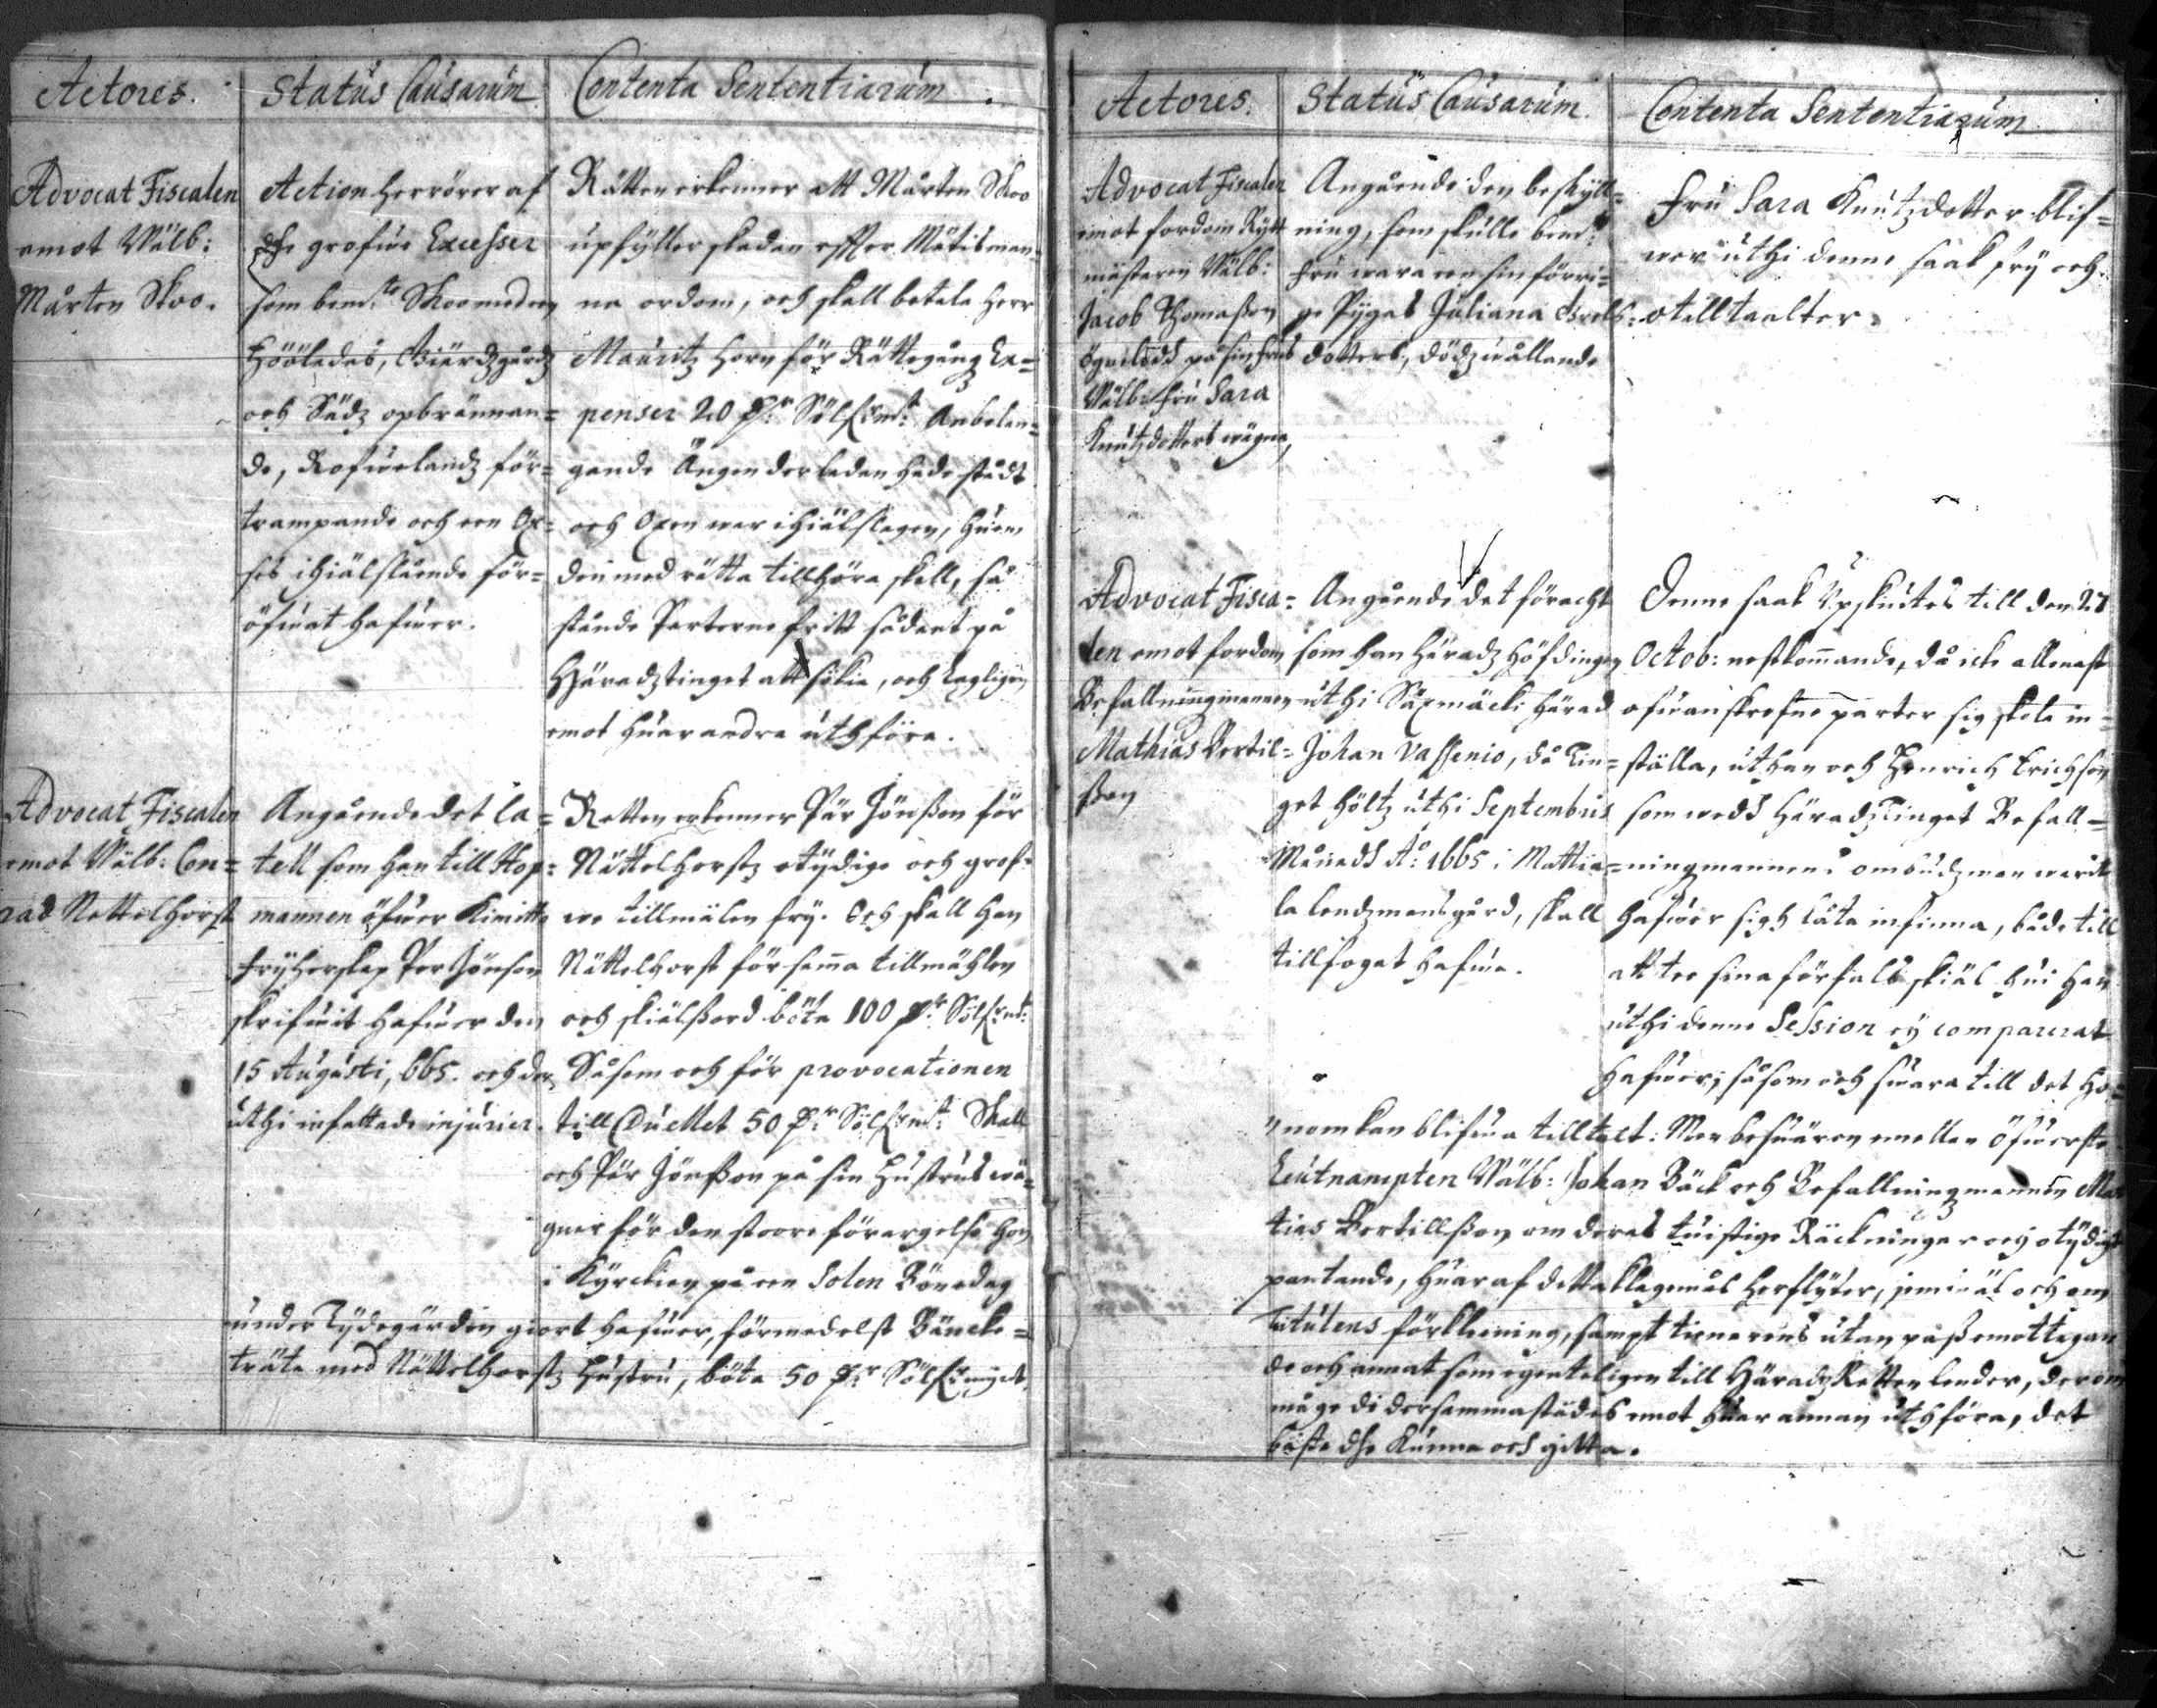 Actores.
Status Causarum
Contenta Sententiarum.
Advocat Fiscalen
emot Wälb:
Mårten Skoo.
Action herrörer af
dhe grofwe Excesser
som bem:te Skoo medom
Hööledes, Giärdzgårdz
och Sädz opbrännan=
de, Rofwelandz för=
trampande och een Ox=
ses ihiälslående för=
öfwat hafwer.
Rätten erkenner att Mårten Skoo
upfyller skadan effter Mätisman=
na ordom, och skall betala herr
Mauritz Horn för Rättegång Ex=
penser 20 d:r Sölf:mt: Anbelan=
gande Ängen der ladan hade stådt
och Oxen war ihiälslagen, huem
den med rätta tillhöra skall, så
stånde Parterne fritt sådant på
Häradztinget att sökia, och lagligen
emot huarandra uthföra.
Advocat Fiscalen
emot Wälb: Con=
rad Nettelhorst
Angående det la=
tell som han till Hop=
mannen öfwer Kimitto
Fryherskap Per Jönson
skrifwit hafwer den
15 Augusti, 665. och der
uthi infattade injurier.
Retten erkenner Pär Jönßon för
Nättelhorstz otydige och grof=
we tillmälen fry. Och skall han
Nättelhorst för samma tillmählen
och skiälßord böta 100 d:r Sölf:mt:
Såsom och för provocationen
till Duellet 50 d:r Sölf:mt: Skall
och Pär Jönßon på sin Hustrus wä=
gner för den stoore förargelse hon
i Kyrckien på een Solen Bönedag
under Tydegärden giort hafwer, förmedelst Bäncke=
träta med Nättelhorstz hustru, böta 50 d:r Sölf:mynt.
Actores.
Status Causarum.
Contenta Sententiarum
Advocat Fiscalen
emot fordom Rytt
mästaren Wälb:
Jacob Thomaßon
Ögnelodh på sin frus
Wälb: fru Sara
Knutzdotters wägna,
Angående den beskyll=
ning, som skulle bem:te
fru wara een sin förri=
ge Pygas Juliana Grels=
dotters, dödz wållande
Fru Sara Knutzdotter blif=
wer uthi denne saak fry och
otilltaalter.
Advocat Fisca=
len emot fordom
Befallningzmannen
Mathias Bertil=
ßon
Angående det föracht
som han Häradz Höfdingen
uthi Säxmäcki Härad
Johan Vassenio, då Tin=
get höltz uthi Septembris
Månadh A:o 1665 i Mattia=
la lendzmansgård, skall
tillfogat hafwa.
Denne saak Upskiutes till den 27
Octob: nestkommande, då icke allenast
ofwanskrefne parter sig skola in=
ställa, uthan och Henrich Erichson
som wedh Häradztinget Befall=
ningzmannens ombudzman warit
hafwer sigh låta infinna, både till
att tee sina förfals skiäl hui han
uthi denne Session ey comparerat
hafwer, såsom och suara till det Ho=
nom kan blifwa tilltalt: Men besuären emellan Öfwerste
Leutnampten Wälb: Johan Bäck och Befallningzmannen Mat
tias Bertillßon om deras tuistige Räckningar och otydigt
pantande, huar af detta klagemål herflyter, jemwäl och om
Titulens förkleening, sampt tienarens utan paß emottagan
de och annat som egenteligen till Häradz Rätten lender, der om
måge di dersammastädes emot huar annan uthföra, det
bäste dhe kunna och gitta.